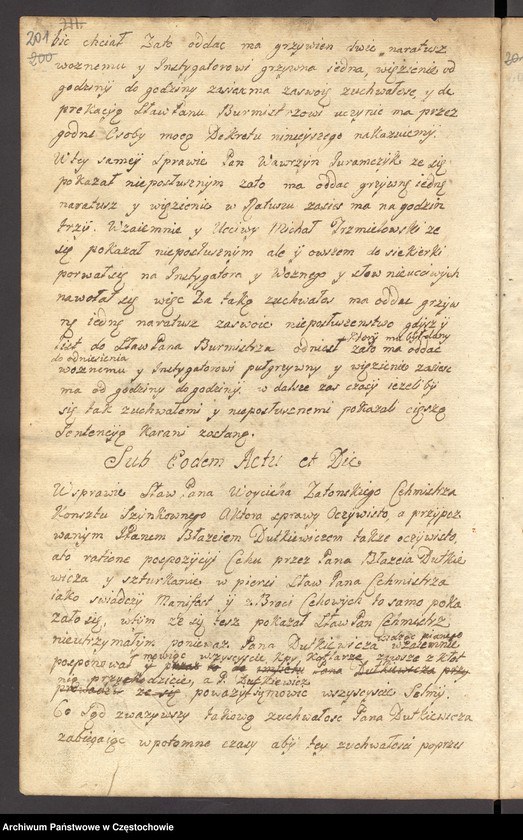 201
200
bic chciał Zato oddac ma grzywien dwie naratusz
woznemu y Instygatorowi grzywna iedna, więzienie od
godziny do godziny zasięma zaswoię zuchwałosc, y de
prekacyią Sław Panu Burmistrzowi uczynic ma przez
godne Osoby mocą Dekretu ninieyszego nakazuiemy.
W tey samey sprawie Pan Wawrzyn Juramczyk ze się
pokazał nieposłusznym zato ma oddac grzywnę iednę
naratusz y więzienie w Ratuszu zasieść ma na godzin
trzy. Wzaiemnie y Uczciwy Michał Trzmielowski ze
się pokazał nieposłusznym ale y owszem do siekierki
porwał się na Instygatora y Woznego y słow nieuczciwych
nawołał się więc Za taką zuchwałosc ma oddac grzyw
nę iednę naratusz zaswoie nieposłuszenstwo gdysz y
list do Sław Pana Burmistrza odniesc który miał oddany
do odniesienia zato ma oddac
woznemu y Instygatorowi pułgrzywny y więzienie zasiesc
ma od godziny do godziny. w dalsze zas czasy iezeliby
się tak zuchwałemi y nieposłusznemi pokazali cięszką
Sentencyią karani zostaną.
Sub Eodem Actu et Die
W sprawie Sław Pana Woyciecha Zatonskiego Cechmistrza
Konsztu Szynkownego Aktora sprawy Oczywisto, a przypoz
wanym Panem Błazeiem Dutkiewiczem takze oczywisto,
ato ratione pospozycyi Cechu przez Pana Błazeia Dutkie
wicza y szturkanie w piersi Sław Pana Cechmistrza
iako swiadczy Manifest y z Braci Cechowych to samo poka
zało się, wtym ze się tesz pokazał Sław Pan Cechmistrz
nieutrzymałym poniewaz Pana Dutkiewicza wzaiemnie
posponował mowiąc wszyscyscie
przychodzicie, a P. Dutkiewicz
ze się powazył mowic wszyscyscie Selmy.
Co Sąd zwazywszy takową zuchwałosc Pana Dutkiewicza
zabiegaiąc wpotomne czasy aby tey zuchwałosci poprzes
Archiwum Państwowe w Częstochowie